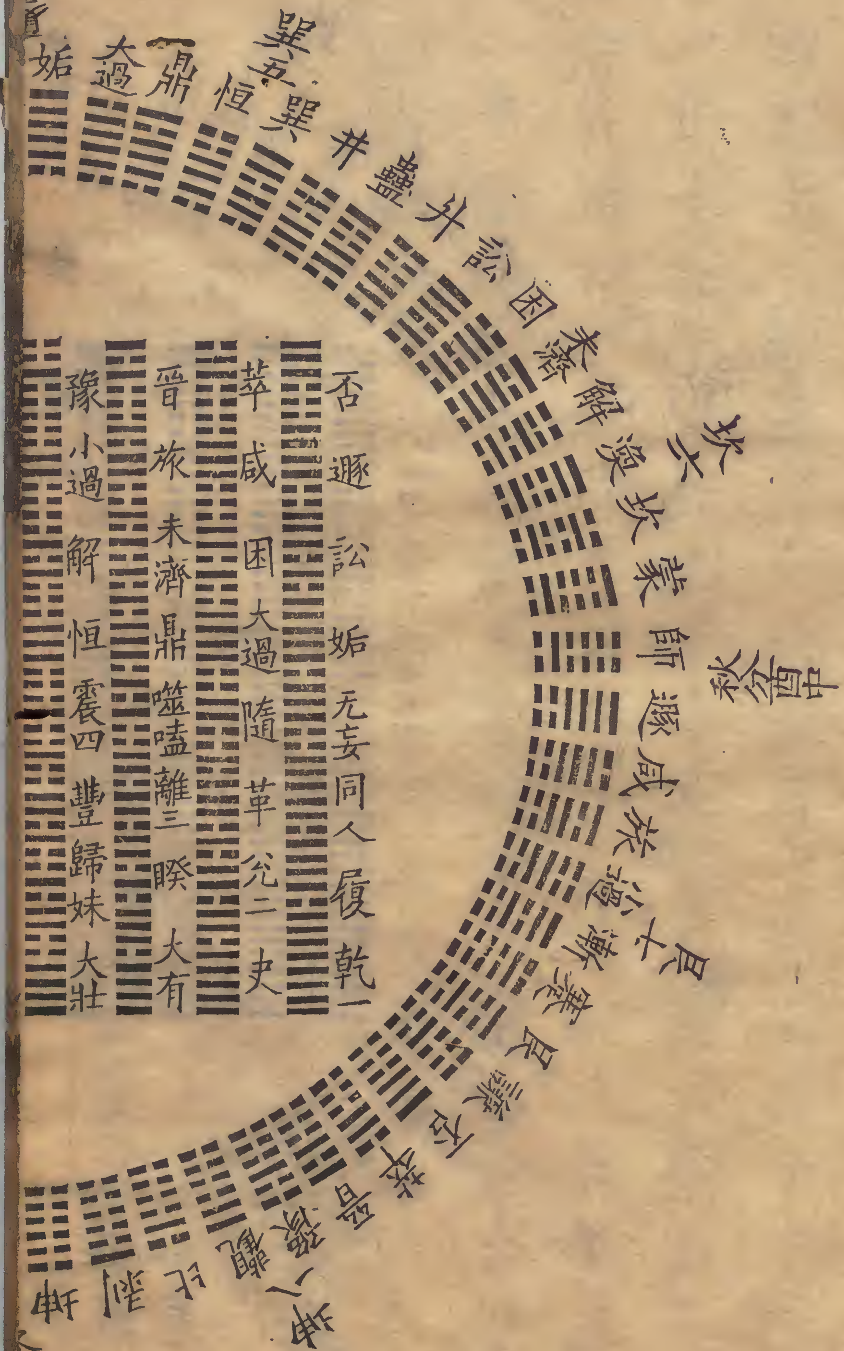 姤
大過
鼎
恒
巽五
巽
井
蠱
升
訟
困
未濟
解
渙
坎六
坎
蒙
師
遯
咸
旅
小過
漸
蹇
艮七
艮
謙
否
萃
晉
豫
觀
比
剥
坤八
坤
否 遯 訟 姤 无妄 同人 履 乾一
萃 咸 困 大過 隨 革 兊二 夬
晉 旅 未濟 鼎 噬嗑 離三 睽 大有
豫 小過 解 恒 震四 豐 歸妹 大壯